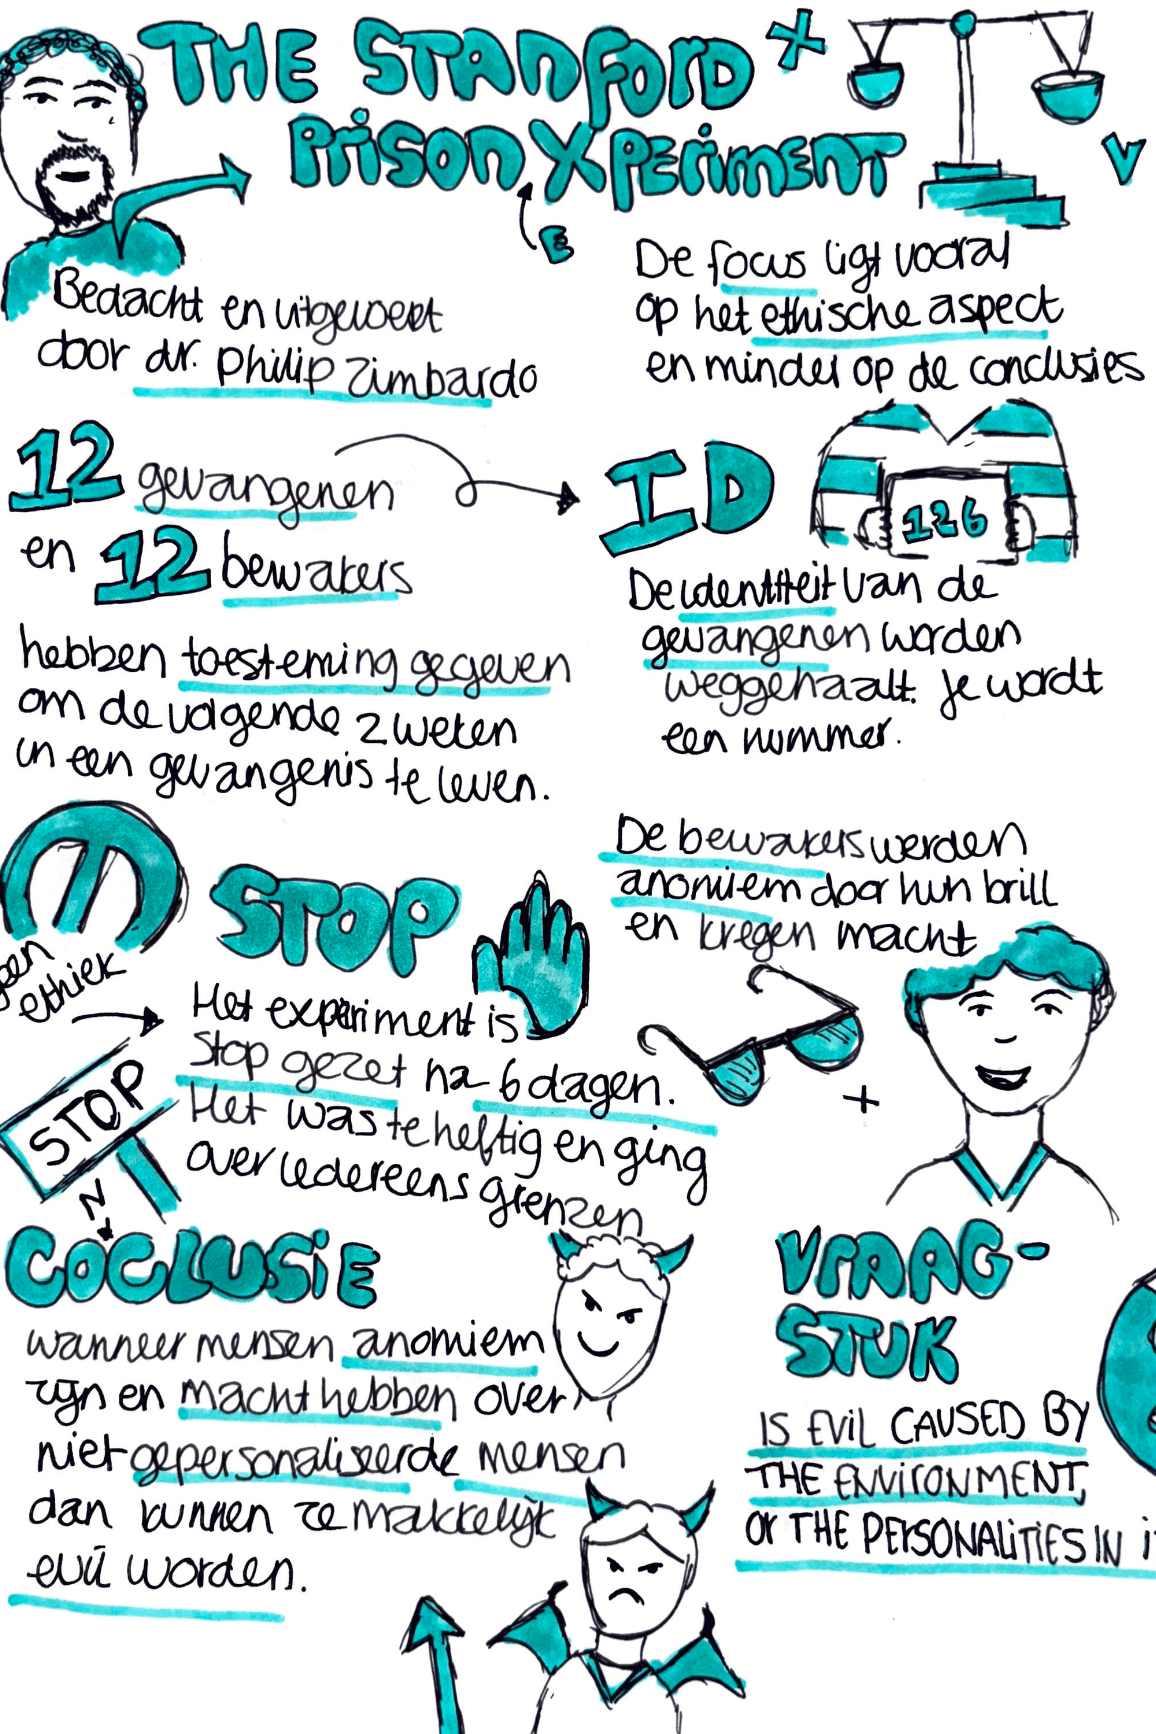 THE STANFORD
PRISON XPERIMENT
E
X
V
Bedacht en uitgevoert
door dr. Philip Zimbardo
De focus ligt vooral
op het ethische aspect
en minder op de conclusies
12 gevangenen
en 12 bewakers
hebben toesteming gegeven
om de volgende 2 weken
in een gevangenis te leven.
ID
126
De identiteit van de
gevangenen worden
weggehaalt. Je wordt
een nummer.
De bewakers werden
anomiem door hun brill
en kregen macht
+
geen
ethiek
STOP
STOP
Het experiment is
stop gezet na 6 dagen.
Het was te heftig en ging
over iedereens grenzen
N
COCLUSIE
wanneer mensen anomiem
zijn en macht hebben over
niet gepersonaliseerde mensen
dan kunnen ze makkelijk
evil worden.
VRAAG-
STUK
IS EVIL CAUSED BY
THE ENVIRONMENT,
Or THE PERSONALITIES IN IT